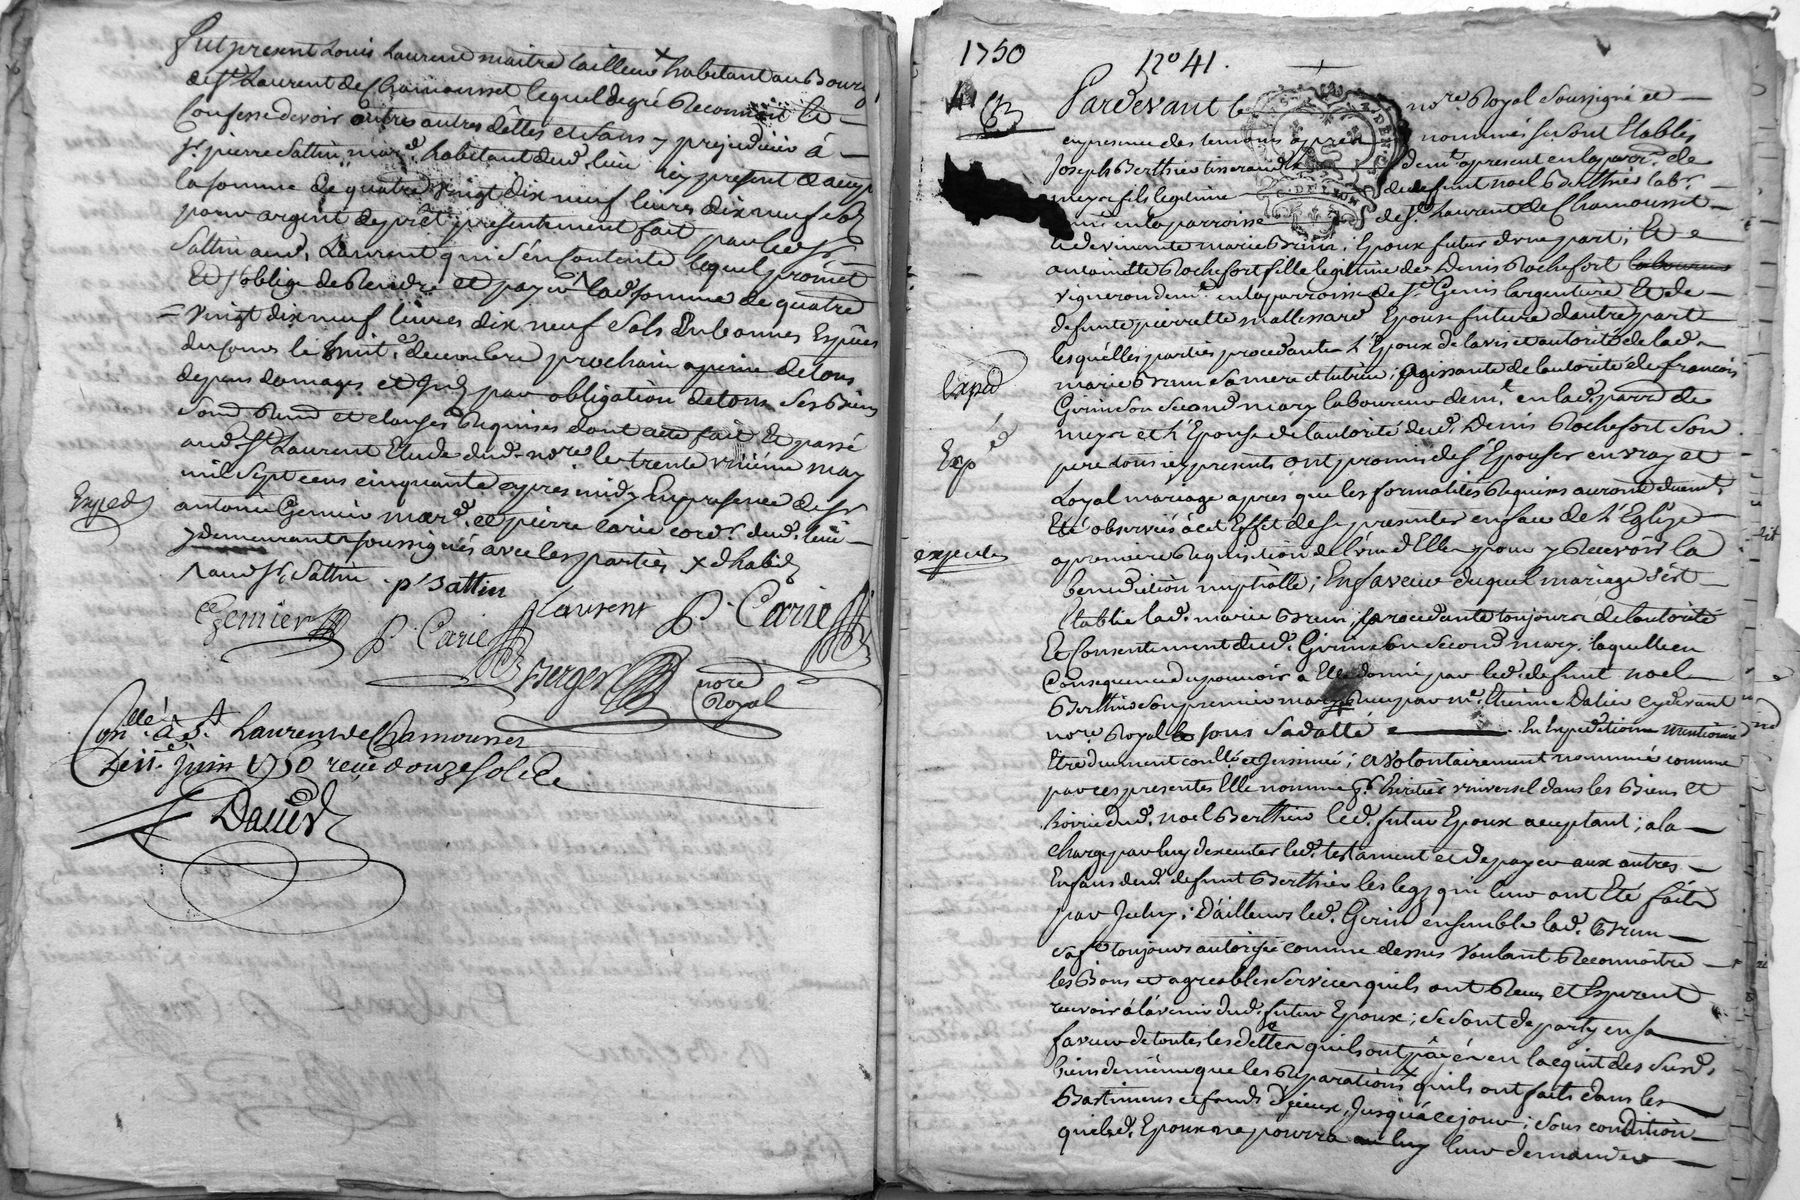 fut present Louis Laurent maitre tailleur x habitant au Bourg
de St Laurent de Chamousset lequel de gré Reconnoit et
Confesse devoir outres autres dettes et sans y prejudicier à
sr. pierre Sattin mard. habitant dud. lieu icy present & accept.
la somme de quatre vingt dix neuf livres dix neuf sols
pour argent de prêt presentement fait par led. sr.
Sattin aud. Laurent qui s'en contente lequel promet
Et s'oblige de Rendre et payer lad. somme de quatre
= vingt dix neuf livres dix neuf sols En bonnes Espèces
du cours le huit e. decembre prochain a peine de tous
depens domages et par obligation de tous ses Biens
soum. Rend. et clauses Requises dont acte fait Et passé
aud. St Laurent Etude dud. nore. le trente unième may
mil sept cens cinquante apres midy En presence de sr
antoine Genier mard. et pierre Carie cord. dud. lieu
y demeurants soussignés avec les parties x d'habits
Exped
aud. sr. Sattin p. Sattin
Genier P. Carie Laurent P. Carie
Berger nore Royal
Con.llé à St. Laurent de Chamousset
Le 11e. juin 1750 reçu douze sols
Dalier
1750 no 41.
Pardevant le nore Royal soussigné et
en presence des temoins après nommés se sont Etablis
Joseph Berthier tisserand demt. a present en la parr. de
meys fils legitime de defunt noel Berthier labr.
en la parroisse de St. Laurent de Chamousset
et de vivante marie Brun ; Epoux futur d'une part ; Et
antoinette Rochefort fille legitime de Denis Rochefort laboureur
vigneron demt. en la parroisse de St. Genis largentiere Et de
defunte pierrette mallessard Epouse future d'autre part
lesquelles parties procedantes l'Epoux de l'avis et autorité de lad.
marie Brun sa mere et tutrice ; agissante de l'autorité de francois
Exped
Girin son second mary laboureur demt. en lad. parre de
meys et l'Epouse de l'autorité dud. Denis Rochefort son
Exp é
pere tous icy presents ont promis de s'Epouser en vray et
Loyal mariage après que les formalités Requises auront duemt.
Eté observées à cet Effet de se presenter en face de l'Eglize
expedié
a premiere Requisition de l'un d'Elles pour y Recevoir la
benediction nuptialle ; En faveur duquel mariage s'est
Etablie lad. marie Brun ; procedante toujours de l'autorité
Et Consentement dud. Girin son second mary. laquelle en
Consequence du pouvoir à Elle donné par led. defunt noel
Berthier son premier mary Reçu par me. Etienne Dalier cy devant
nore Royal sous sa datte. En Expedition mentionné
Etre duement conllé et insinué ; a volontairement nommé comme
par ces presentes Elle nomme pr. heritier universel dans les Biens et
hoirie dud. noel Berthier led. futur Epoux acceptant ; a la
charge par luy d'executer led. testament et de payer aux autres
Enfans dud. defunt Berthier les legs qui leur ont Eté faits
par Iceluy ; D'ailleurs led. Girin ensemble lad. Brun
sa fe. toujours autorisée comme dessus voulant Reconnoitre
les Bons et agreables services qu'ils ont Reçus et Esperent
recevoir à l'avenir dud. futur Epoux ; se sont departy en sa
faveur de toutes les dettes qu'ils ont payé en l'acquit des susd.
biens de même que les Reparations x qu'ils ont faits dans les
Bastimens et fonds d'yceux, Jusqu'à ce jour ; sous condition
que led. Epoux ne pourra leur demander